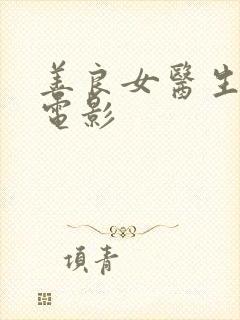 善良女醫生
電影
項青